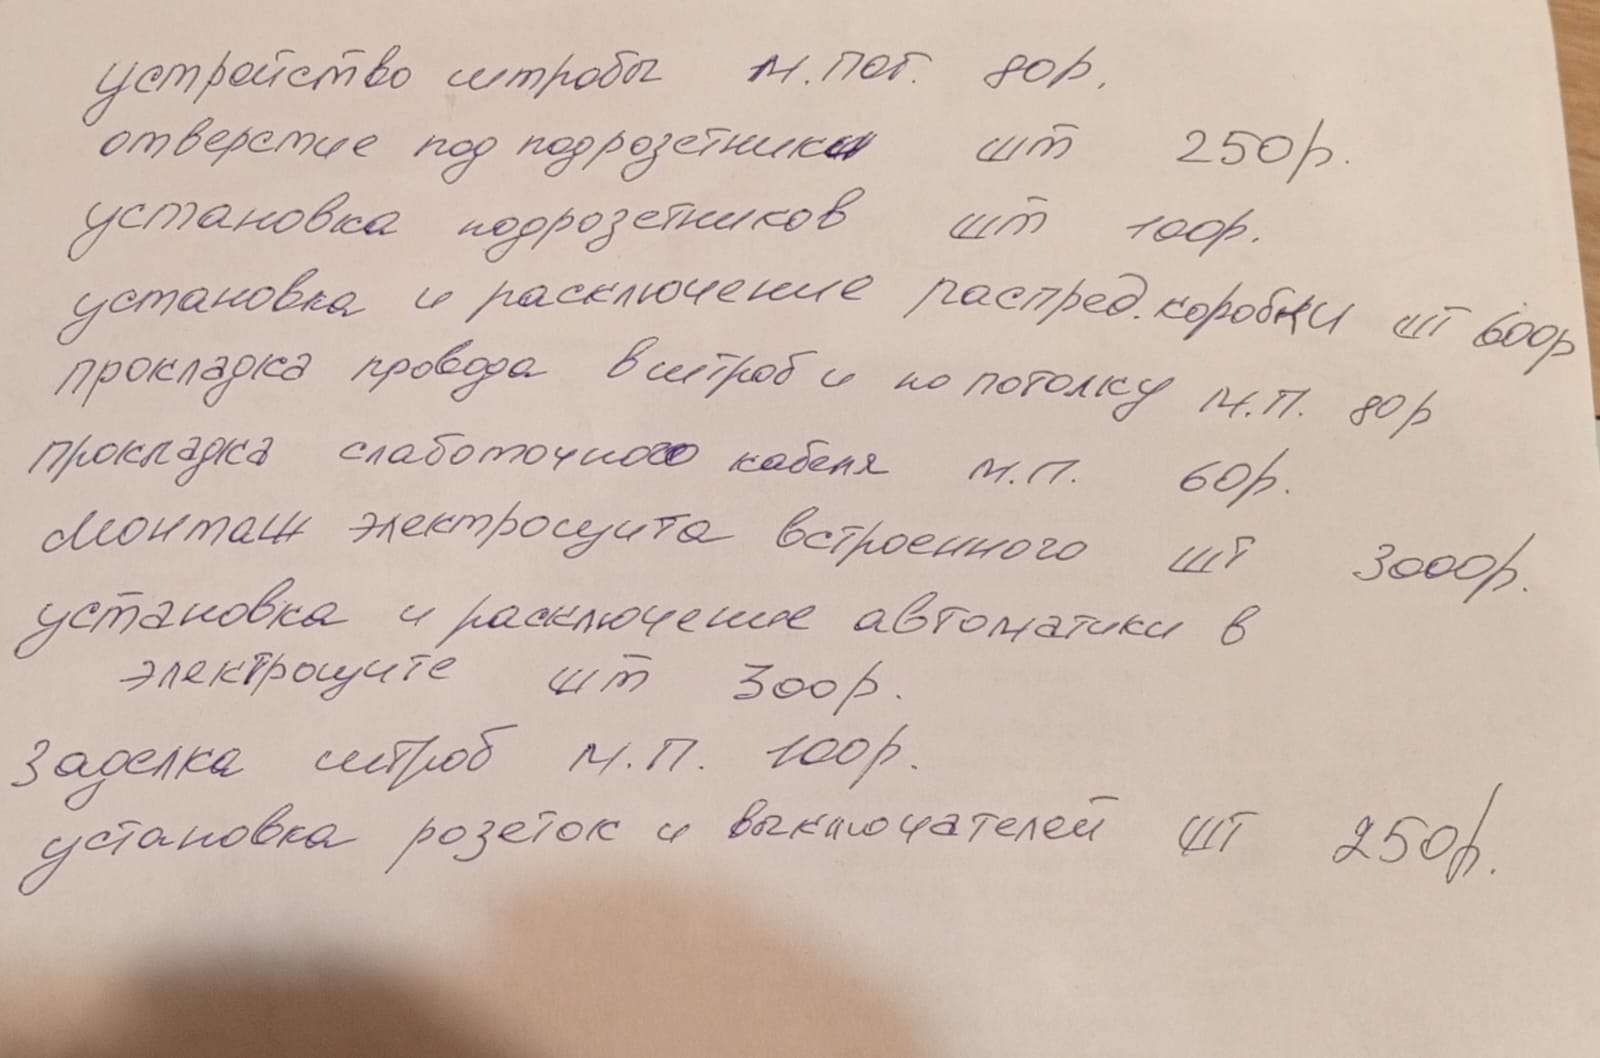 устройство штробы м.пог. 80р.
отверстие под подрозетники шт 250р.
установка подрозетников шт 100р.
установка и расключение распред.коробки шт 600р
прокладка провода в штроб и по потолку м.п. 80р
прокладка слаботочного кабеля м.п. 60р.
Монтаж электрощита встроенного шт 3000р.
установка и расключение автоматики в
электрощите шт 300р.
Заделка штроб м.п. 100р.
установка розеток и выключателей шт 250р.